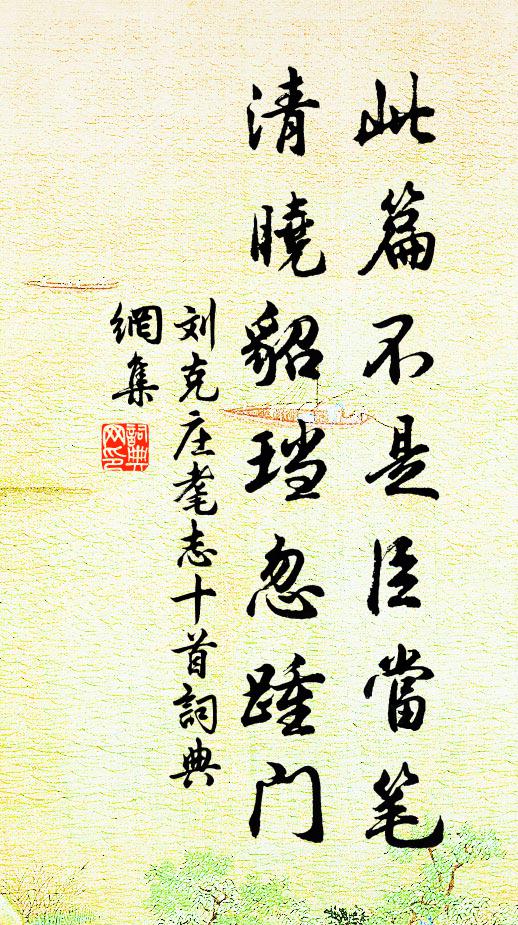 此篇不是臣當笔
清曉貂珰忽踵门
刘克庄耄志十首詞典
網集
詞典网印